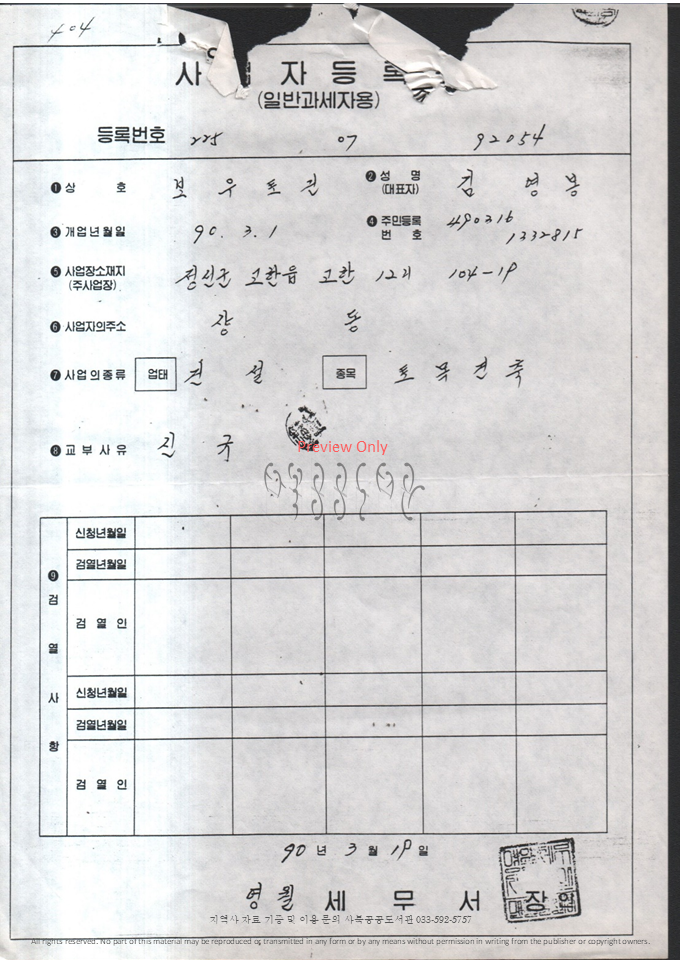 404
사업자등록증
(일반과세자용)
등록번호 225 07 92054
❶ 상 호 보우토건 ❷ 성 명 (대표자) 김영봉
❸ 개업년월일 90. 3. 1 ❹ 주민등록 번 호 490216 1332815
❺ 사업장소재지 (주사업장) 정선군 고한읍 고한 12리 104-19
❻ 사업자의주소 상 동
❼ 사업의종류 업태 건설 종목 토목건축
❽ 교부사유 신규
Preview Only
❾ 검열사항
신청년월일
검열년월일
검 열 인
신청년월일
검열년월일
검 열 인
90 년 3 월 19 일
영월 세 무 서 장
지역사 자료 기증 및 이용 문의 사북공공도서관 033-592-5757
All rights reserved. No part of this material may be reproduced or transmitted in any form or by any means without permission in writing from the publisher or copyright owners.